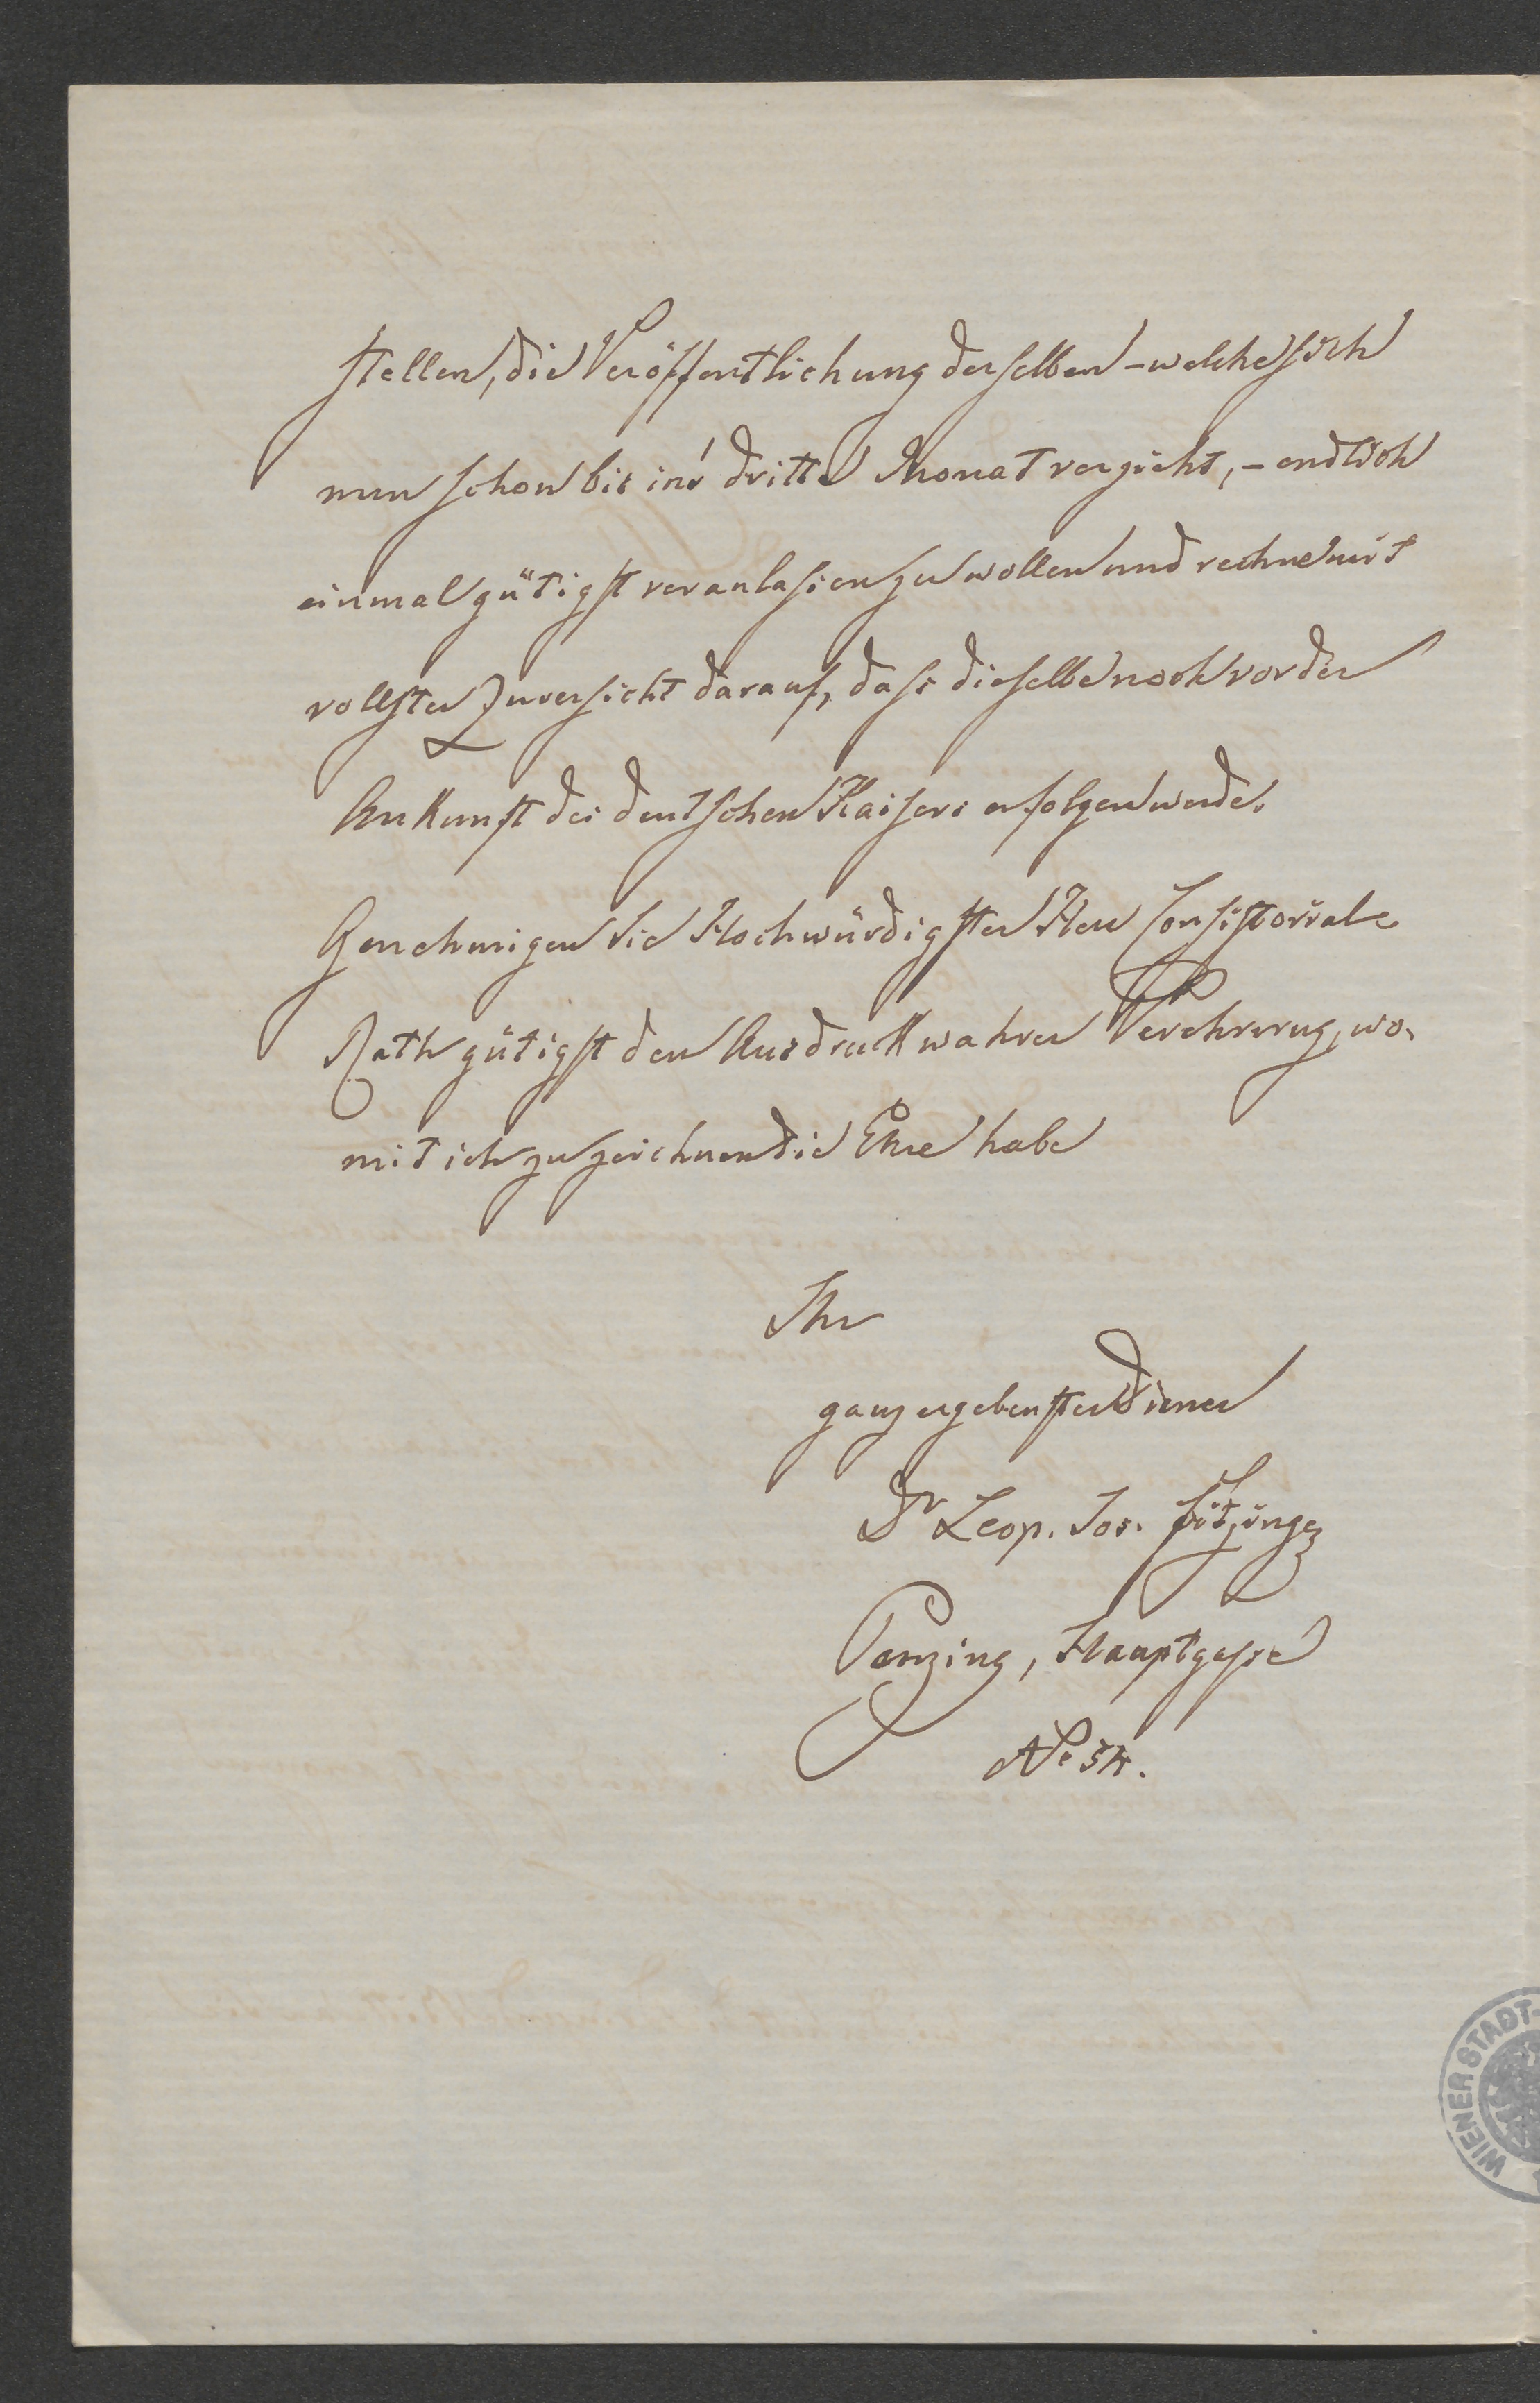 stellen, die Veröffentlichung derselben – welche sich
nun schon bis in's dritte Monat verzieht, – endlich
einmal gütigst veranlassen zu wollen und rechne mit
vollster Zuversicht darauf, dass dieselbe noch vor der
Ankunft des deutschen Kaisers erfolgen werde.
Genehmigen Sie Hochwürdigster Herr Consistorial-
Rath gütigst den Ausdruck wahrer Verehrung, wo-
mit ich zu zeichnen die Ehre habe
Ihr
ganz ergebenster Diener
Dr Leop. Jos. Fitzinger
Penzing, Hauptgasse
No
WIENER STADT-